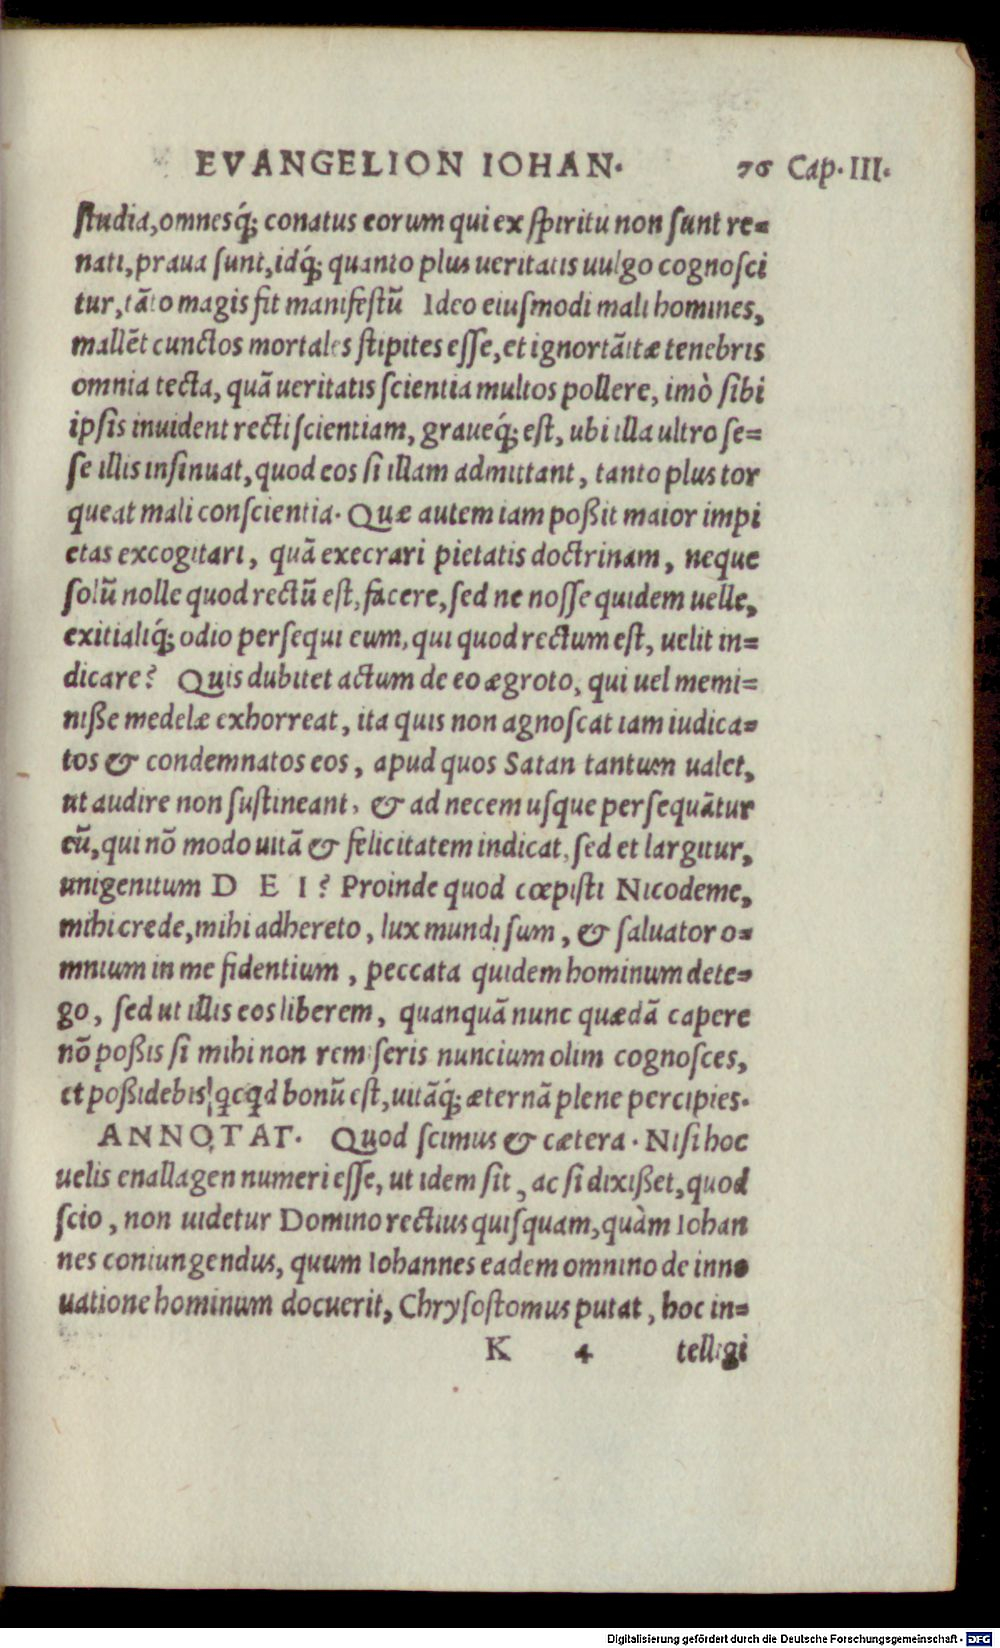 EVANGELION IOHAN. 76 Cap. III.
studia, omnesq́; conatus eorum qui ex spiritu non sunt re=
nati, praua sunt, idq́; quanto plus ueritatis uulgo cognosci
tur, tãto magis fit manifestũ Ideo eiusmodi mali homines,
mallẽt cunctos mortales stipites esse, et ignortãitæ tenebris
omnia tecta, quã ueritatis scientia multos pollere, imò sibi
ipsis inuident recti scientiam, graueq́; est, ubi illa ultro se=
se illis insinuat, quod eos si illam admittant, tanto plus tor
queat mali conscientia. Quæ autem iam poßit maior impi
etas excogitari, quã execrari pietatis doctrinam, neque
solũ nolle quod rectũ est, facere, sed ne nosse quidem uelle,
exitialiq́; odio persequi eum, qui quod rectum est, uelit in=
dicare? Quis dubitet actum de eo ægroto, qui uel memi=
nisse medelæ exhorreat, ita quis non agnoscat iam iudica=
tos & condemnatos eos, apud quos Satan tantum ualet,
ut audire non sustineant, & ad necem usque persequãtur
eũ, qui nõ modo uitã & felicitatem indicat, sed et largitur,
unigenitum D E I? Proinde quod cœpisti Nicodeme,
mihi crede, mihi adhereto, lux mundi sum, & saluator o=
mnium in me fidentium, peccata quidem hominum dete=
go, sed ut illis eos liberem, quanquã nunc quædã capere
nõ poßis si mihi non rem seris nuncium olim cognosces,
et poßidebis qcqd bonũ est, uitãq́; æternã plene percipies.
ANNOTAT. Quod scimus & cætera. Nisi hoc
uelis enallagen numeri esse, ut idem sit, ac si dixißet, quod
scio, non uidetur Domino rectius quisquam, quàm Iohan
nes coniungendus, quum Iohannes eadem omnino de inno
uatione hominum docuerit, Chrysostomus putat, hoc in=
K 4 telligi
Digitalisierung gefördert durch die Deutsche Forschungsgemeinschaft - DFG